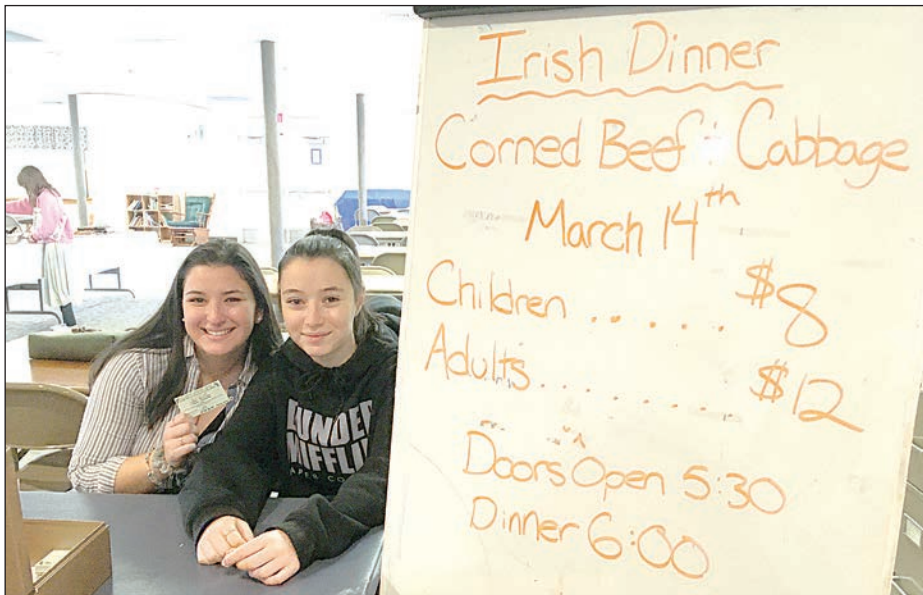 Irish Dinner
Corned Beef + Cabbage
March 14th
Children ...... $8
Adults ........ $12
Doors Open 5:30
Dinner 6:00
UNDER
MIFFLI